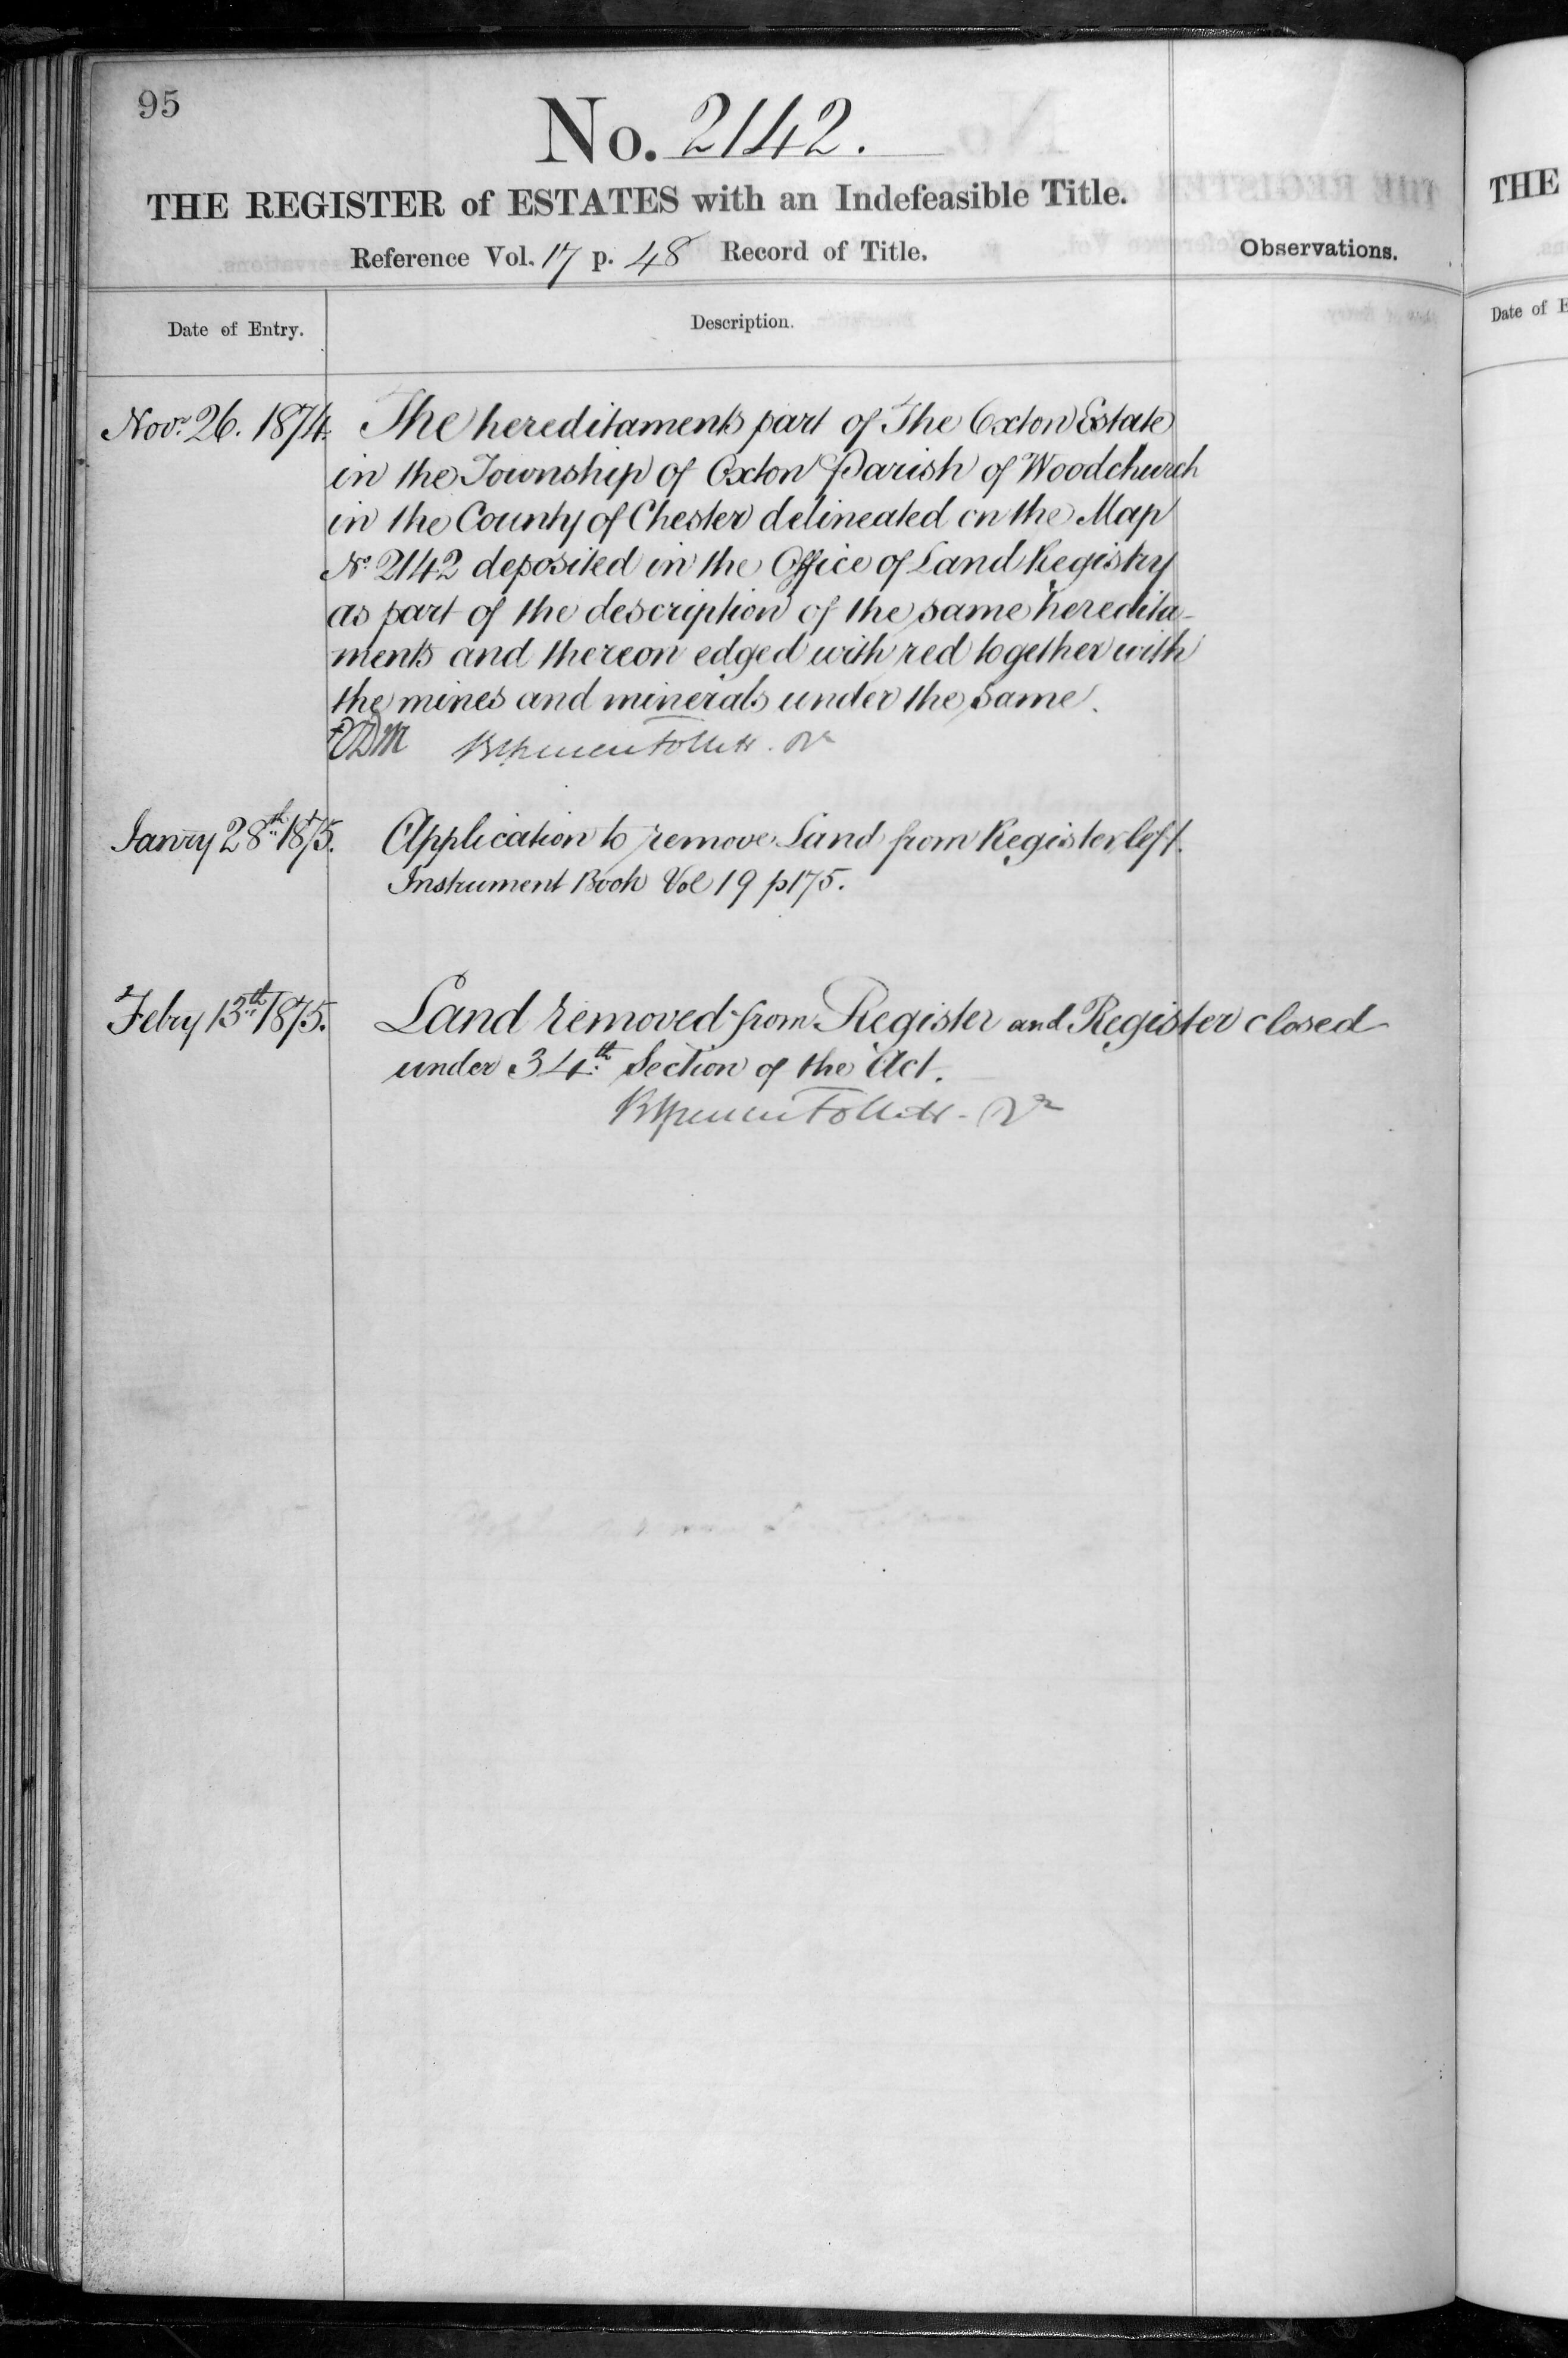 95
No. 2142.
THE REGISTER of ESTATES with an Indefeasible Title.
Reference Vol. 17 p. 48 Record of Title.
Observations.
Date of Entry.
Description.
Novr. 26. 1874. The hereditaments part of The Oxton Estate
in the Township of Oxton Parish of Woodchurch
in the County of Chester delineated on the Map
No. 2142 deposited in the Office of Land Registry
as part of the description of the same heredita-
ments and thereon edged with red together with
the mines and minerals under the same.
Follett
Janry 28th 1875. Application to remove Land from Register left.
Instrument Book Vol 19 p175.
Febry 13th 1875. Land removed from Register and Register closed
under 34th Section of the Act.
Follett
THE
Date of E